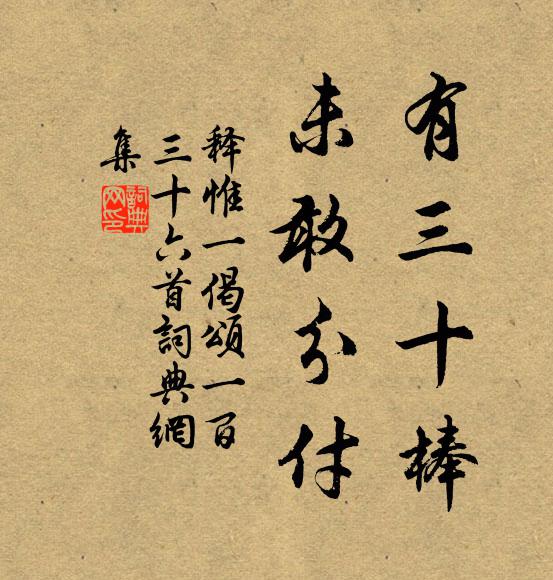 有三十棒
未敢分付
释惟一偈頌一百
三十六首詞典網
集
詞典
网印